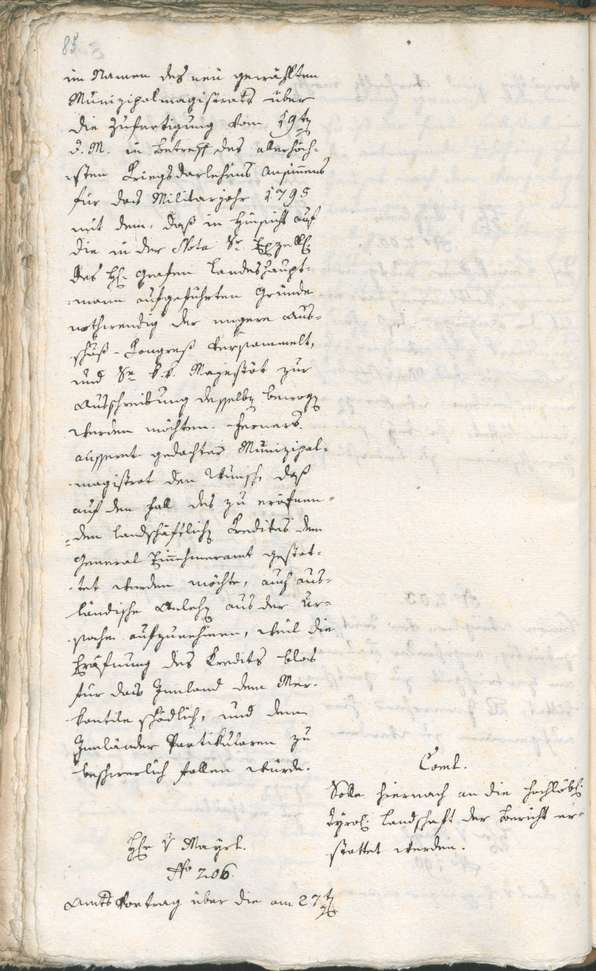 85.
im Namen des neu gewählten
Munizipalmagistrats über
die Zufertigung vom 19ten
d. M. in Betreff des allerhöch-
sten Kriegsdarlehens Ansinnens
für das Militarjahr 1795
mit dem, daß in Hinsicht auf
die in der Nota Sr Exzell.
des H. Grafen Landeshaupt-
mann aufgeführten Gründe
nothwendig der engere Aus-
schuß-Kongreß versammelt,
und Sr k. k. Majestät zur
Ausschreibung desselben bewogen
werden möchten. Ferners
äusseret gedachter Munizipal-
magistrat den Wunsch, daß
auf den Fall des zu eröfnen-
den landschäftlichen Credites dem
General Einnehmeramt gestat-
tet werden möchte, auch aus-
ländische Anlehen aus der Ur-
sache aufzunehmen, weil die
Eröfnung des Credits blos
für das Innland dem Mer-
kantile schädlich, und denen
Innländer Partikularen zu
beschwerlich fallen würde.
Concl.
Solle hiernach an die hochlöbl.
Tyrol. Landschaft der Bericht er-
stattet werden.
Hr v Mayrl.
No 206.
Amts Vortrag über die am 27ten